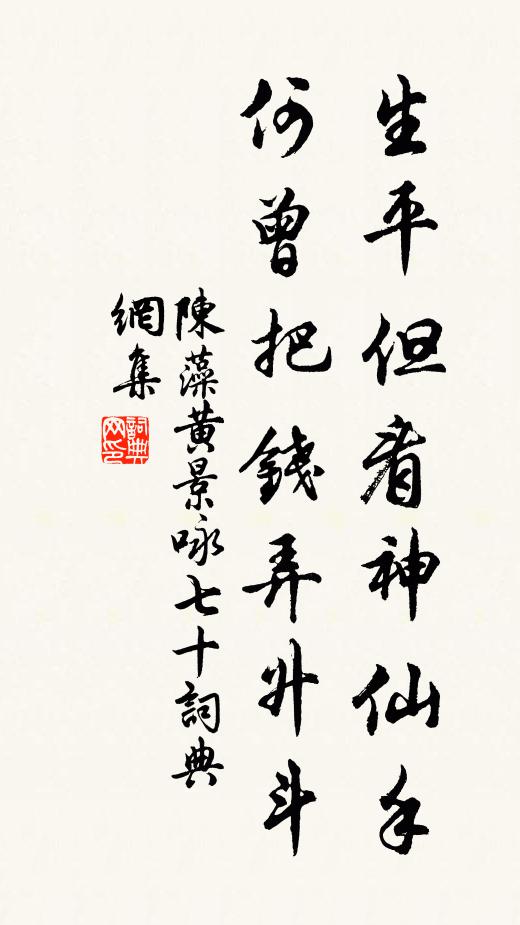 生平但看神仙手
何曾把錢弄升斗
陳藻黃景咏七十詞典
網集
詞典网印